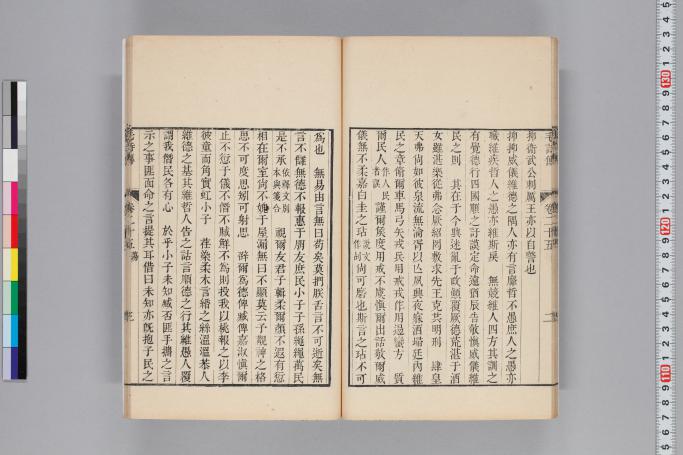 抑衛武公刺厲王亦以自警也
抑抑威儀維德之隅人亦有言靡哲不愚庶人之愚亦
職維疾哲人之愚亦維斯戾　無競維人四方其訓之
有覺德行四國順之訏謨定命遠猶辰告敬慎威儀維
民之則　其在于今興迷亂于政顛覆厥德荒湛于酒
女雖湛樂從弗念厥紹罔敷求先王克共明刑　肆皇
天弗尚如彼泉流無淪胥以亡夙興夜寐洒埽廷內維
民之章脩爾車馬弓矢戎兵用戒戎作用逷蠻方　質
爾民人謹爾侯度用戒不虞慎爾出話敬爾威
儀無不柔嘉白圭之玷尚可磨也斯言之玷不可
爲也　無易由言無曰苟矣莫捫朕舌言不可逝矣無
言不讎無德不報惠于朋友庶民小子子孫繩繩萬民
是不承　視爾友君子輯柔爾顏不遐有愆
相在爾室尚不愧于屋漏無曰不顯莫云予覯神之格
思不可度思矧可射思　辟爾爲德俾臧俾嘉淑慎爾
止不愆于儀不僭不賊鮮不爲則投我以桃報之以李
彼童而角實虹小子　荏染柔木言緡之絲溫溫恭人
維德之基其維哲人告之話言順德之行其維愚人覆
謂我僭民各有心　於乎小子未知臧否匪手攜之言
示之事匪面命之言提其耳借曰未知亦既抱子民之